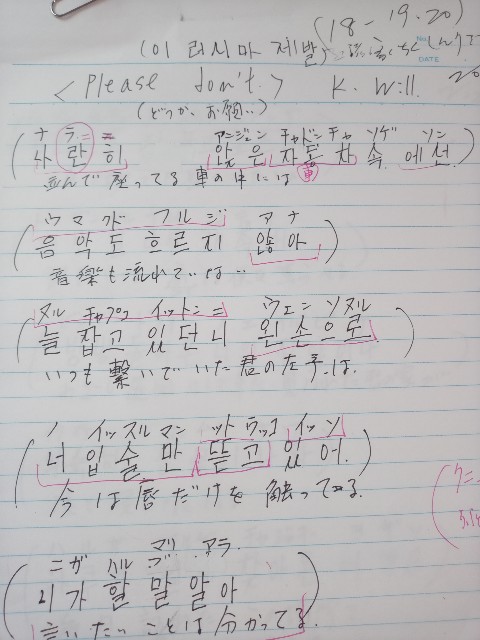 (18-19.20)
(이 러시마 제발)
DATE
<please don't.> K. Will.
(どうか、お願い..)
ナ ラニ ニ アンジュン チャドンチャ ソゲ ソン
나 란 히 앉은 자동차 속 에선
並んで座ってる 車の中には 車
ウマグド フルジ アナ
음악도 흐르지 않아
音楽も流れていな..
ヌル チャプコ イットンニ ウェン ソヌル
늘 잡고 있던니 왼손으로
いつも繋いでいた君の左手は.
ノ イッスルマン ットウッコ イッソ
너 입술만 뜯고 있어.
今は唇だけを触ってる.
ニガ ハル マル アラ.
니가 할 말 알아
言いたいことは分かってる.